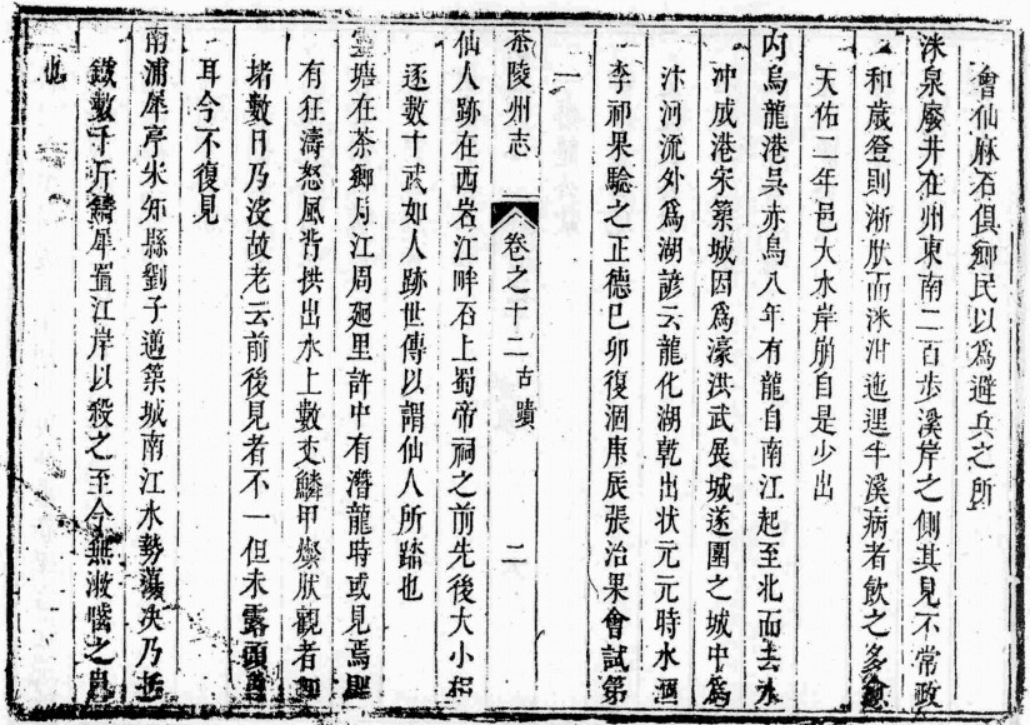 會仙麻石俱鄉民以爲避兵之所
洣泉廢井在州東南二百步溪岸之側其見不常政
和歲登則淅肰而洣泔迤逕半溪病者飲之多愈
天佑二年邑大水岸崩自是少出
內烏龍港吳赤烏八年有龍自南江起至北而去水
冲成港宋築城因爲濠洪武展城遂圍之城中爲
汴河流外爲湖諺云龍化湖乾出状元元時水涸
李祁果驗之正德巳卯復涸庚辰張治果會試第
一
茶陵州志 卷之十二古蹟 二
仙人跡在西岩江畔石上蜀帝祠之前先後大小相
逐數十武如人跡世傳以謂仙人所踏也
靈塘在茶鄉月江周廻里許中有潛龍時或見焉則
有狂濤怒風背拱出水上數丈鱗甲燦肰觀者如
堵數日乃没故老云前後見者不一但未露頭角
耳今不復見
南浦犀亭宋知縣劉子邁築城南江水勢蕩决乃括
鐵數千斤鑄犀置江岸以殺之至今無潄囓之患
也